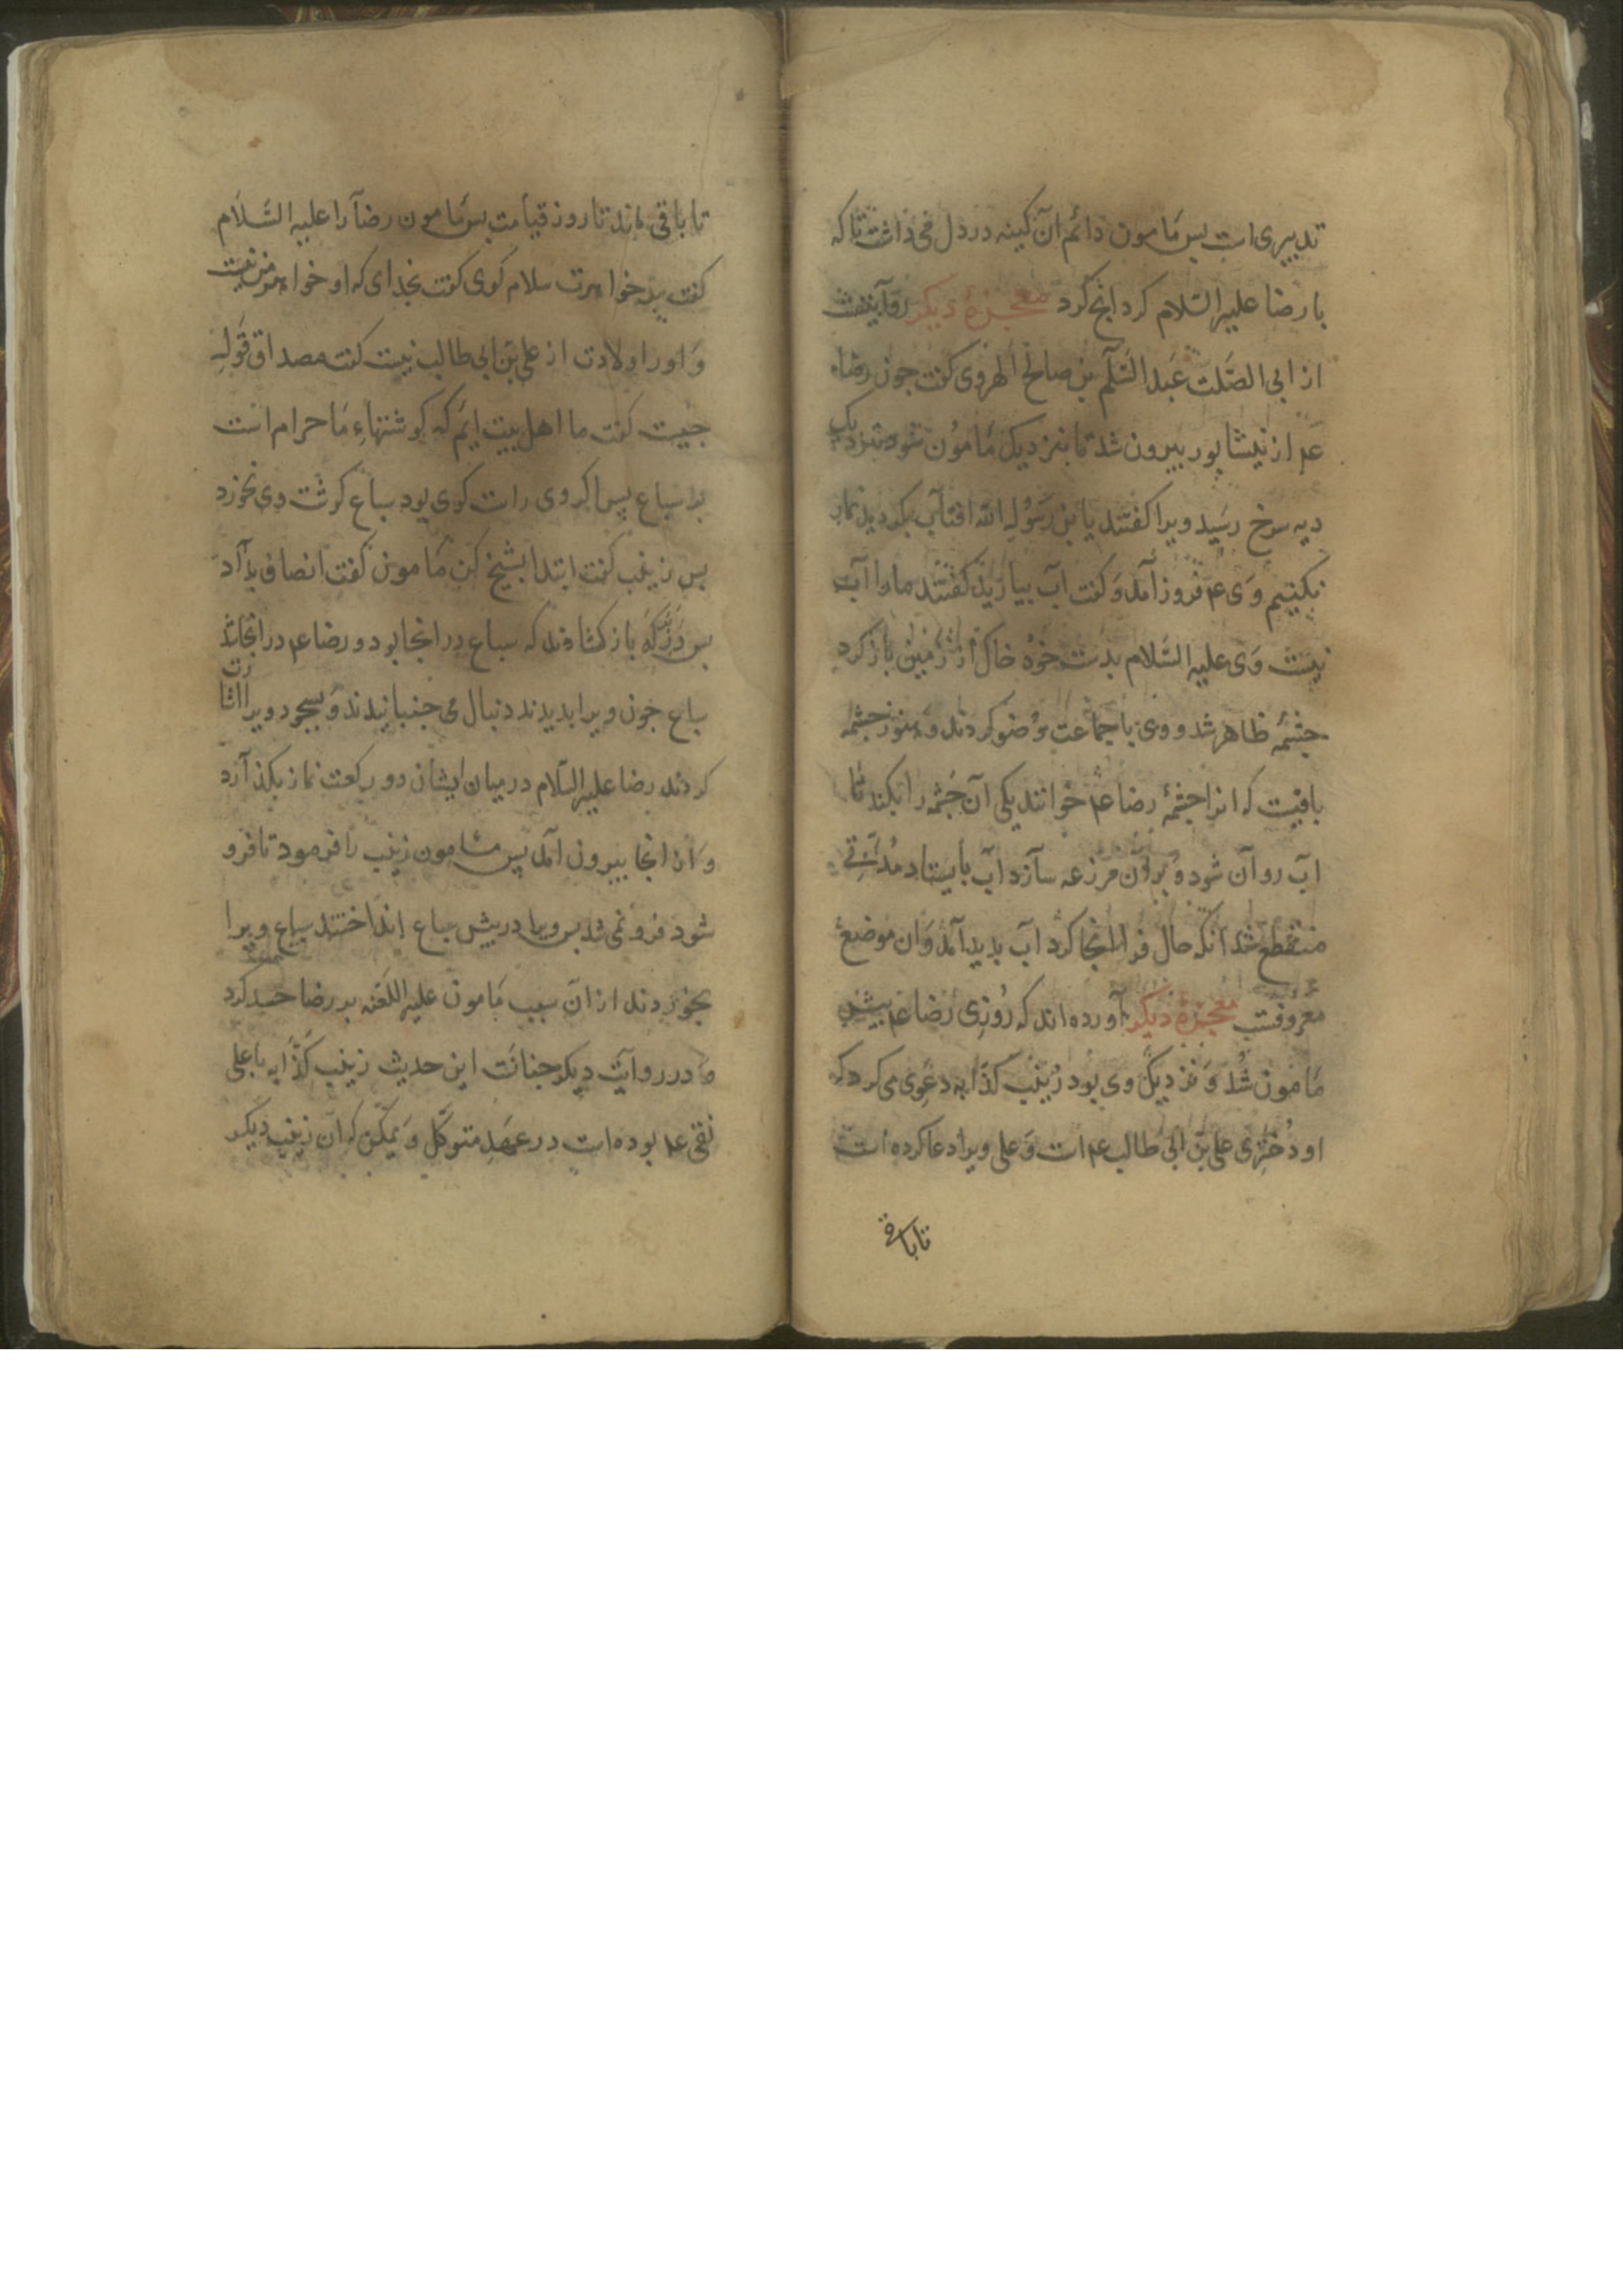 تدبیری است پس مامون دائم آن کینه در دل می داشت تا که
با رضا علیه السلام کرد انچ کرد معجزهٔ دیگر روایتست
از ابی الصلت عبد السلم بن صالح الهروی کفت جون رضاء
عم از نیشابور بیرون شد تا بنزدیک مامون شود بنزدیک
دیه سرخ رسید ویرا کفتند یا بن رسول الله افتاب بکردید نماز
نکنیم وی عم فروز آمد و کفت اب بیارید کفتند مارا آب
نیست وی علیه السلام بدست خود خاک از زمین باز کرد
جشمهٔ ظاهر شد و وی با جماعت وضو کردند و هنوز جشمه
باقیست که انرا جشمهٔ رضا عم خوانند یکی آن جشمه را بکند تا
اب روان شود و بران مرزعه سازد اب بایستاد مدتی
منقطع شد انکه حال فرا انجا کرد اب بدید آمد و ان موضع
معروفست معجزهٔ دیکر آورده اند که روزی رضا عم بیش
مامون شد و نزدیک وی بود زینب کذابه دعوی می کرد که
او دختری علی بن ابی طالب عم است و علی ویرا دعا کرده است
تا باقی
تا باقی ماند تا روز قیامت بس مامون رضا را علیه السلام
کفت بر خواهرت سلام کوی کفت بخدای که او خواهر من نیست
و اورا ولادت از علی بن ابی طالب نیست کفت مصداق قوله
جیست کفت ما اهل بیت ایم که کوشتهاء ما حرام است
بر سباع بس اکر وی راست کوی بود سباع کوشت وی نخورد
بس زینب کفت ابتدا بشیخ کن مامون کفت انصاف بداد
بس در برکه باز کشادند که سباع در انجا بود و رضا عم در انجا شد
سباع جون ویرا بدیدند دنبال می جنبانیدند و بسجود ویرا اشارت
کردند رضا علیه السلام در میان ایشان دو رکعت نماز بکذارد
و از انجا بیرون امد بس مامون زینب را فرمود تا فرو
شود فرو نمی شد بس ویرا در بیش سباع انداختند سباع ویرا
بخوردند از ان سبب مامون علیه اللعنه بر رضا حسد کرد
و در روایت دیکر جنانست این حدیث زینب کذابه با علی
نقی عم بوده است در عهد متوکل و یمکن که ان زینب دیکر